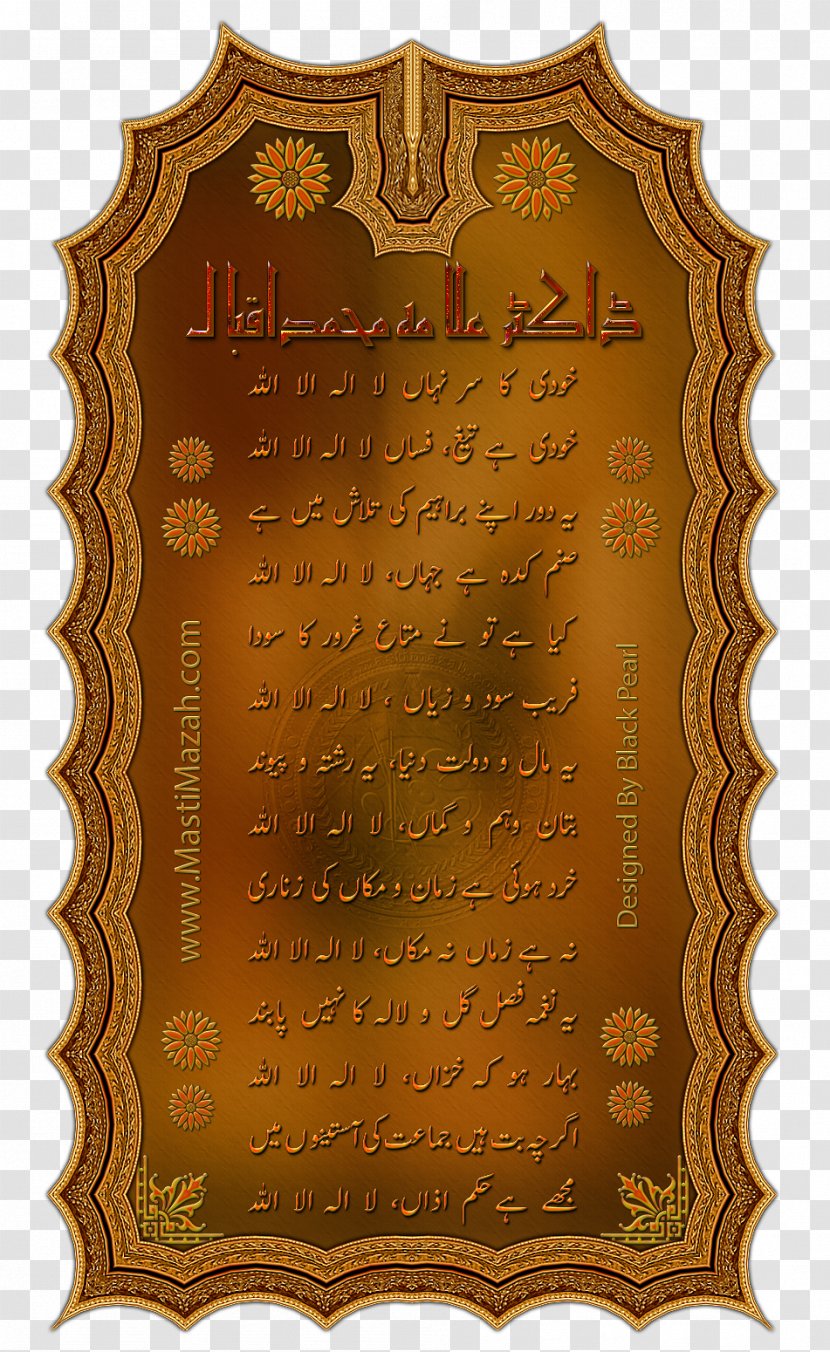 ڈاکٹر علامہ محمد اقبال
خودی کا سر نہاں لا الہ الا اللہ
خودی ہے تیغ، فساں لا الہ الا اللہ
یہ دور اپنے براہیم کی تلاش میں ہے
صنم کدہ ہے جہاں، لا الہ الا اللہ
کیا ہے تو نے متاع غرور کا سودا
فریب سود و زیاں ، لا الہ الا اللہ
یہ مال و دولت دنیا، یہ رشتہ و پیوند
بتان وہم و گماں، لا الہ الا اللہ
خرد ہوئی ہے زمان و مکاں کی زناری
نہ ہے زماں نہ مکاں، لا الہ الا اللہ
یہ نغمہ فصل گل و لالہ کا نہیں پابند
بہار ہو کہ خزاں، لا الہ الا اللہ
اگرچہ بت ہیں جماعت کی آستینوں میں
مجھے ہے حکم اذاں، لا الہ الا اللہ
www.MastiMazah.com
Designed By Black Pearl